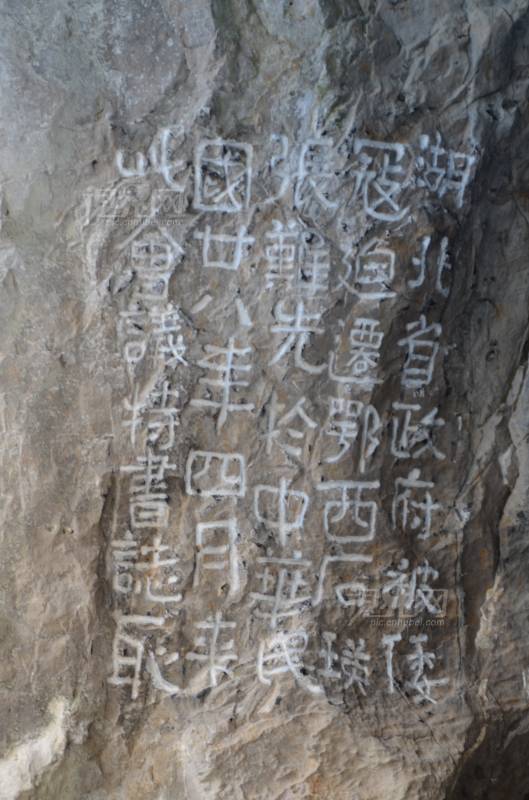 湖北省政府被倭
寇迫遷鄂西石
張難先於中華民
國廿八年四月來
此會議特書誌恥
pic.cnhubei.com
pic.cnhubei.com